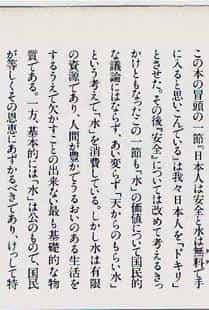 この本の冒頭の一節「日本人は安全と水は無料で手
に入ると思いこんでいる」は我々日本人を「ドキリ」
とさせた。その後〝安全〟については改めて考えるきっ
かけともなったこの一節も、〝水〟の価値について国民的
な議論にはならず、あい変らず「天からのもらい水」
という考えで「水」を消費している。しかし水は有限
の資源であり、人間が豊かでうるおいのある生活を
するうえで欠かすことの出来ない最も基礎的な物
質である。一方、基本的には「水」は公のもので、国民
が等しくその恩恵にあずかるべきであり、けっして特